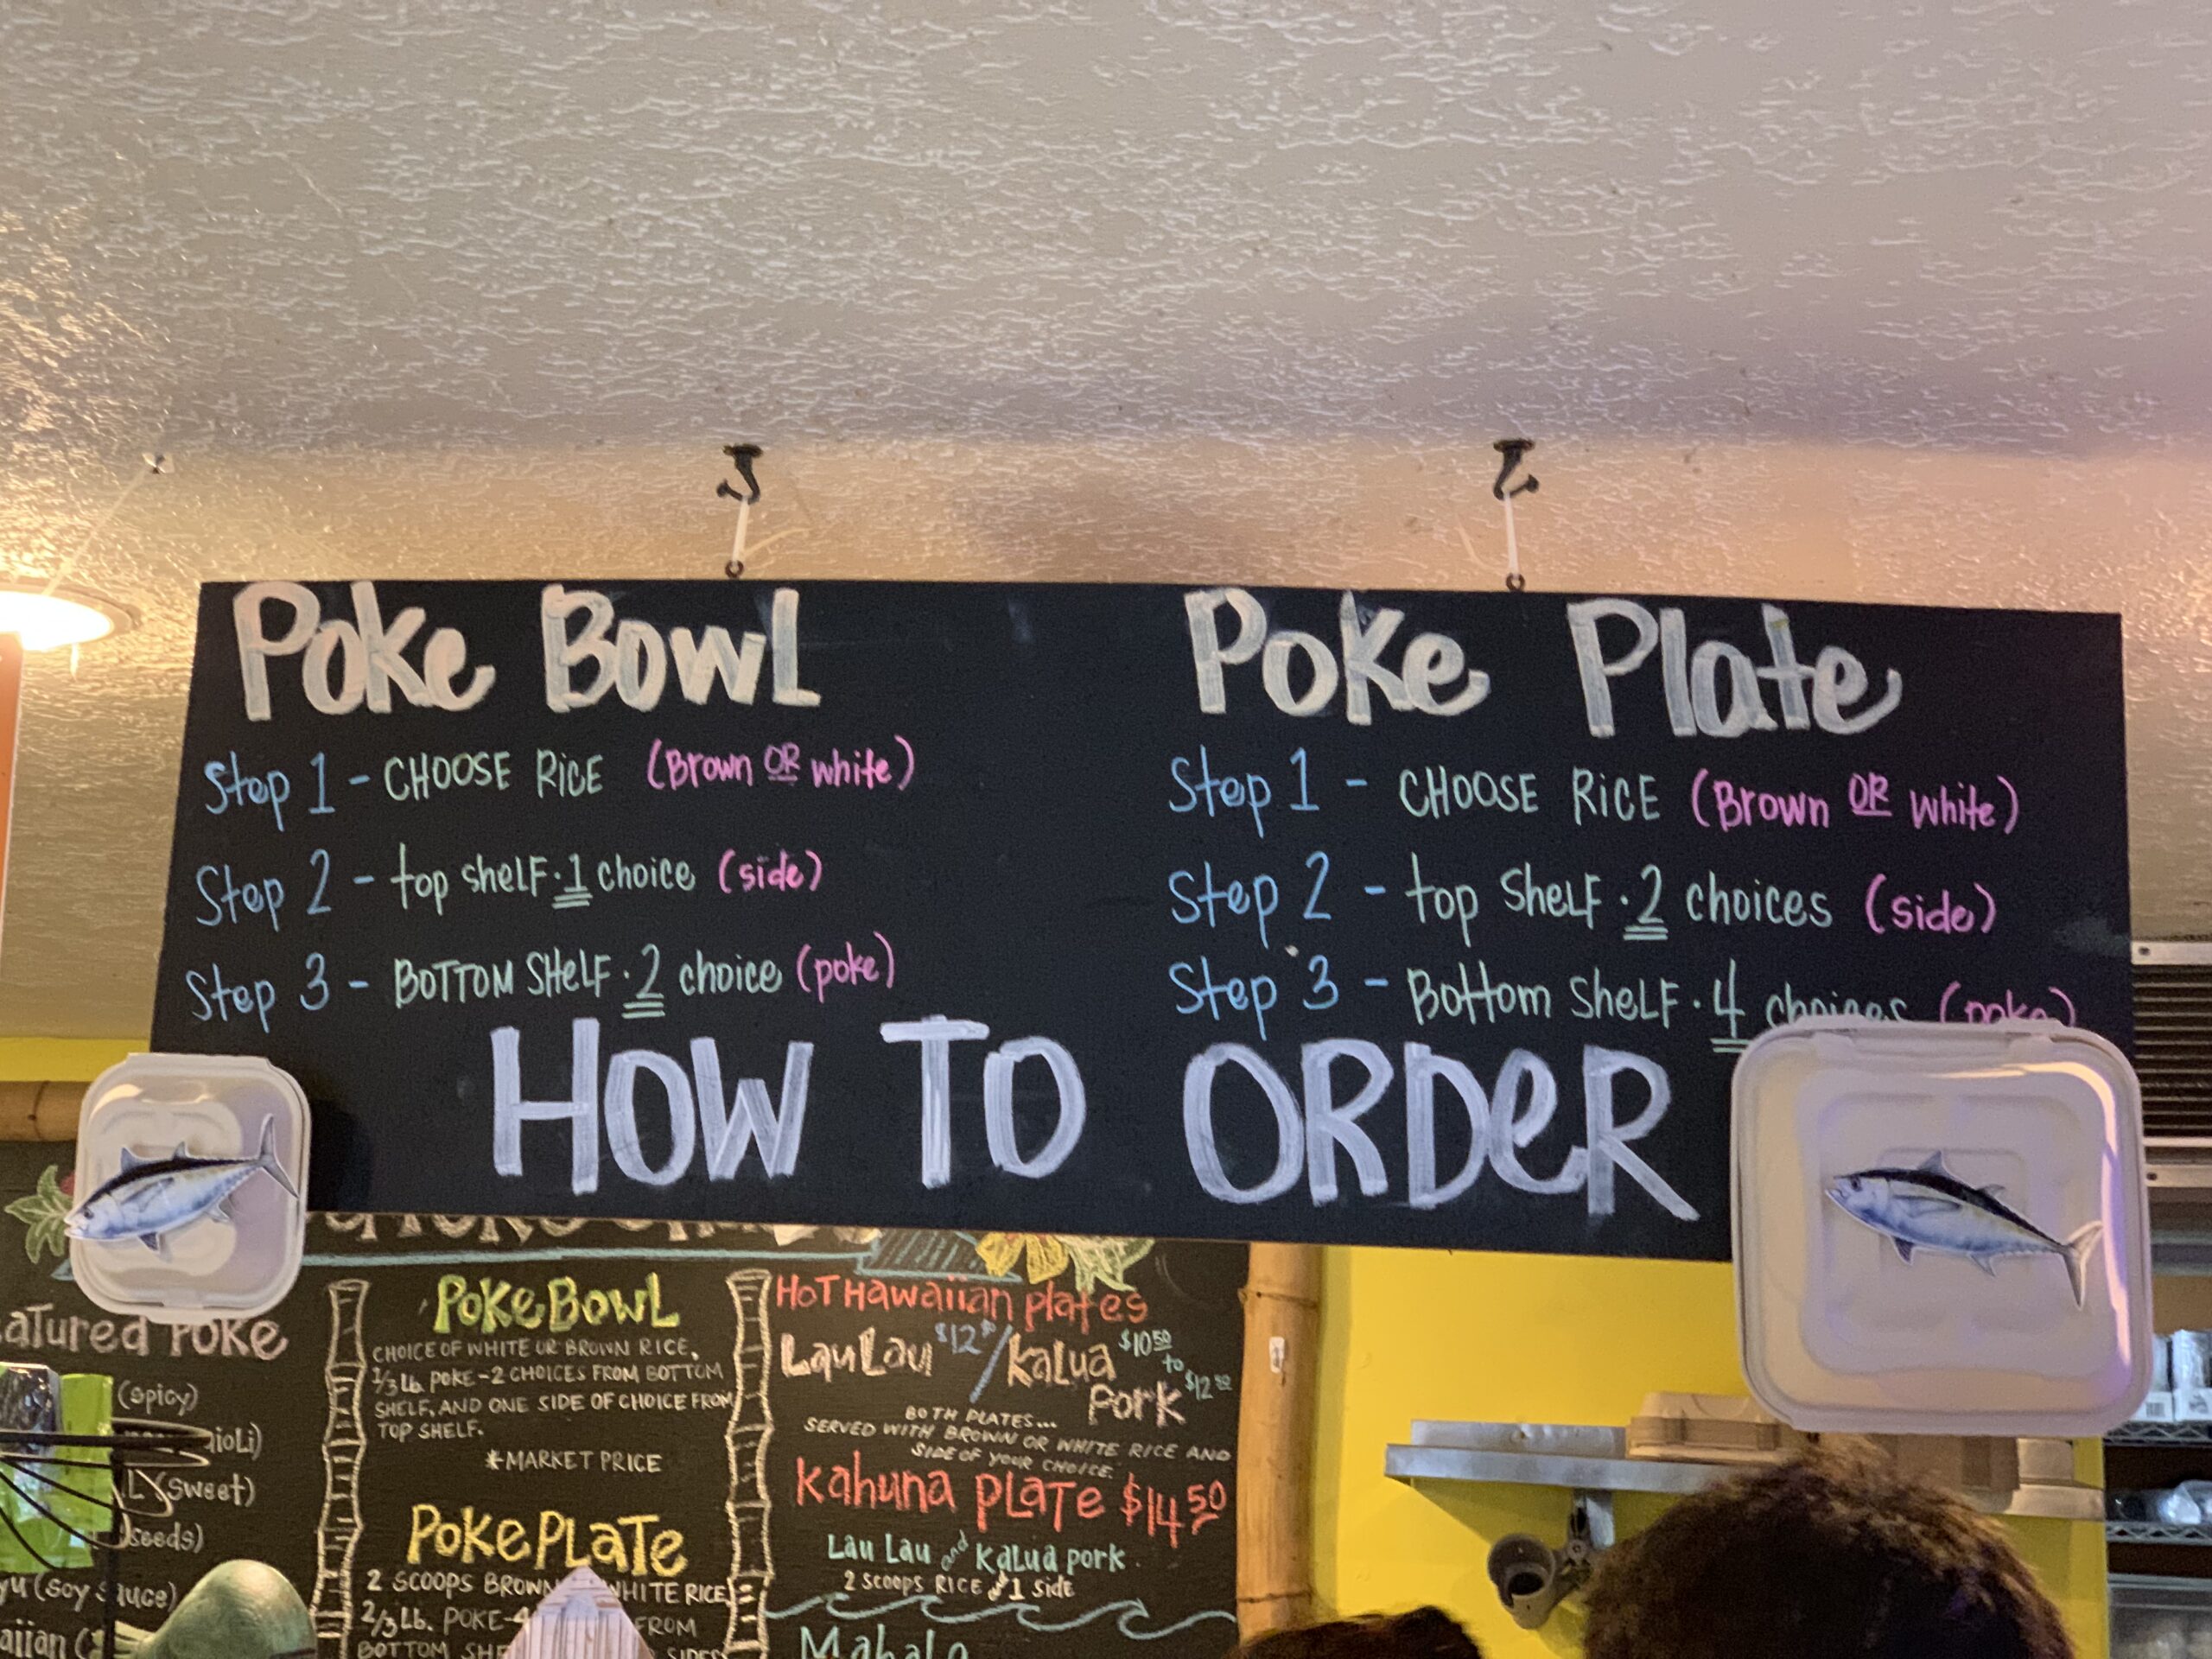 Poke Bowl
Step 1 - CHOOSE RICE (Brown OR white)
Step 2 - top shelf · 1 choice (side)
Step 3 - BOTTOM SHELF · 2 choice (poke)
Poke Plate
Step 1 - CHOOSE RICE (Brown OR white)
Step 2 - top SHELF · 2 choices (side)
Step 3 - Bottom SHELF · 4 choices (poke)
HOW TO ORDER
Poke
(spicy)
(sweet)
seeds)
(soy
PokeBowl
CHOICE OF WHITE OR BROWN RICE,
1/3 Lb. POKE - 2 CHOICES FROM BOTTOM
SHELF, AND ONE SIDE OF CHOICE FROM
TOP SHELF.
*MARKET PRICE
POKE PLATE
2 SCOOPS BROWN WHITE RICE
2/3 Lb. POKE - 4 FROM
BOTTOM
HOT Hawaiian plates
Lau Lau $12 / Kalua Pork $10 50 to $12 50
BOTH PLATES...
SERVED WITH BROWN OR WHITE RICE AND
SIDE OF YOUR CHOICE.
Kahuna PLATE $14 50
Lau Lau and Kalua pork
2 scoops RICE & 1 side
Mahalo